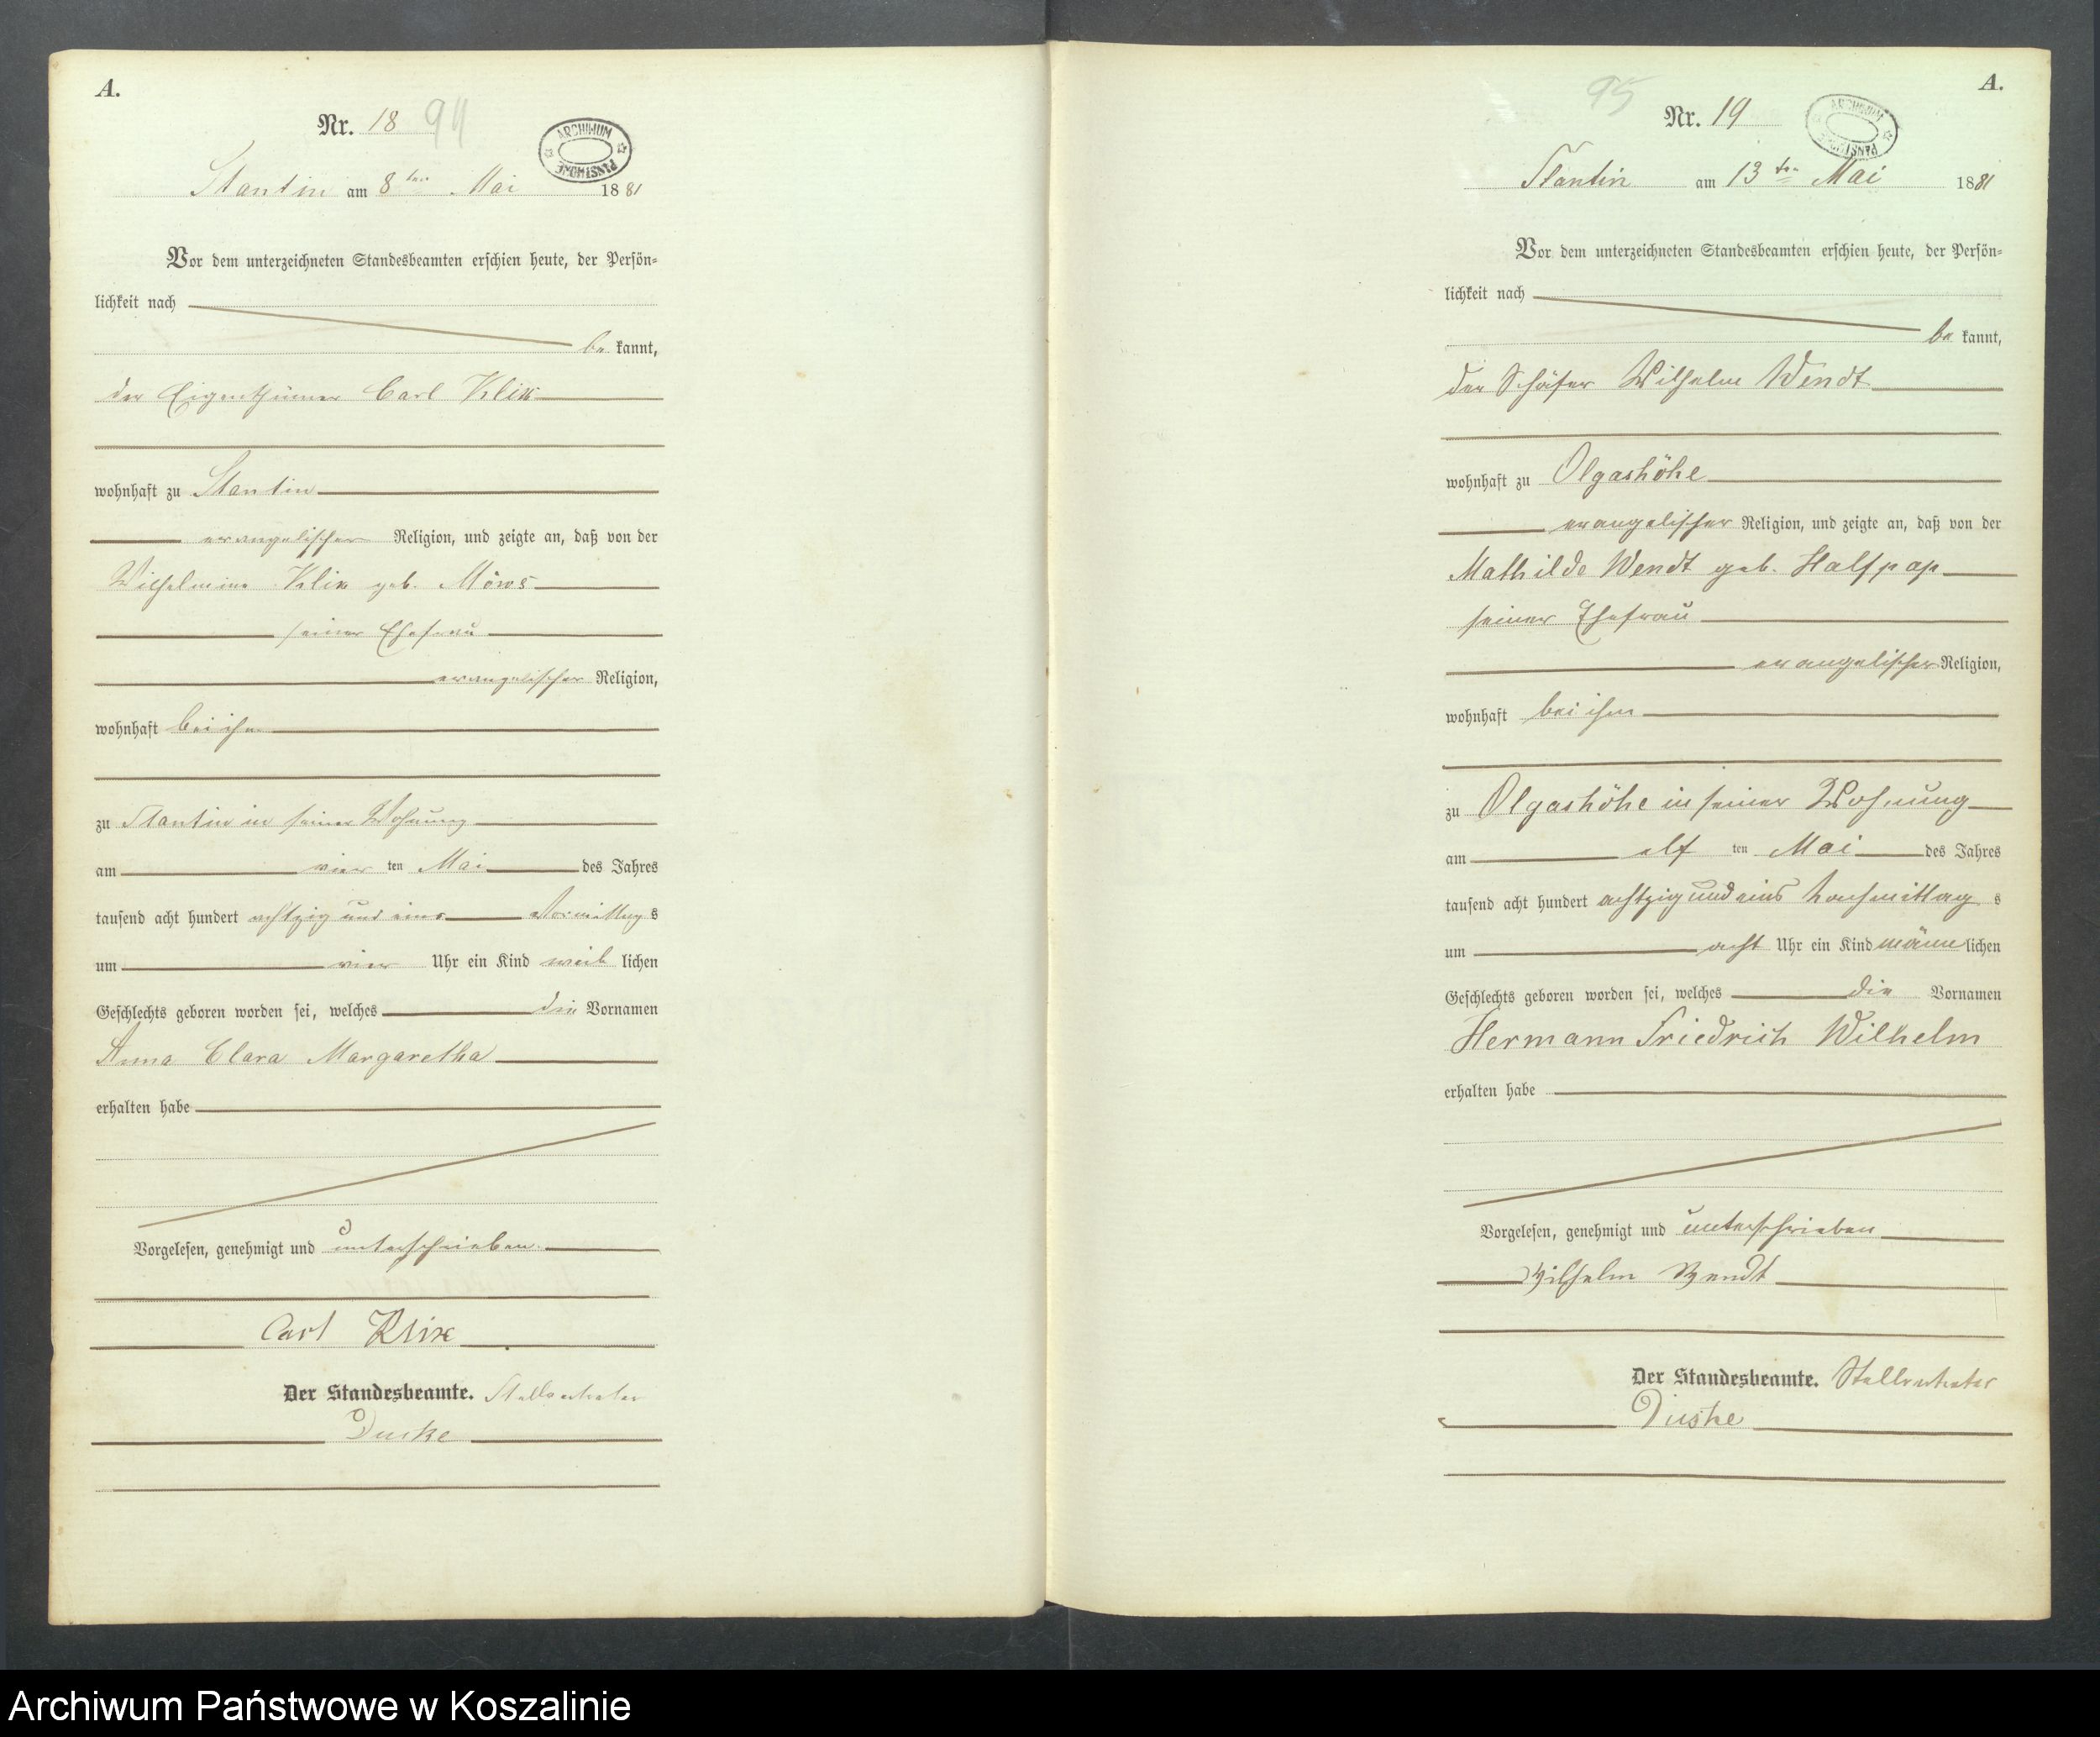 A.
Nr. 18 94
ARCHIWUM PAŃSTWOWE
Stantin am 8ten Mai 1881
Vor dem unterzeichneten Standesbeamten erschien heute, der Persön-
lichkeit nach
be kannt,
der Eigenthümer Carl Klix
wohnhaft zu Stantin
evangelischer Religion, und zeigte an, daß von der
Wilhelmine Klix geb. Möws
seiner Ehefrau
evangelischer Religion,
wohnhaft bei ihm
zu Stantin in seiner Wohnung
am vier ten Mai des Jahres
tausend acht hundert achtzig und eins Vormittag s
um vier Uhr ein Kind weib lichen
Geschlechts geboren worden sei, welches die Vornamen
Anna Clara Margaretha
erhalten habe
Vorgelesen, genehmigt und unterschrieben
Carl Klix
Der Standesbeamte. Stellvertreter
A.
95
Nr. 19
ARCHIWUM PAŃSTWOWE
Stantin am 13ten Mai 1881
Vor dem unterzeichneten Standesbeamten erschien heute, der Persön-
lichkeit nach
be kannt,
der Schäfer Wilhelm Wendt
wohnhaft zu Olgashöhe
evangelischer Religion, und zeigte an, daß von der
Mathilde Wendt geb. Halfpap
seiner Ehefrau
evangelischer Religion,
wohnhaft bei ihm
zu Olgashöhe in seiner Wohnung
am elf ten Mai des Jahres
tausend acht hundert achtzig und eins Nachmittag s
um acht Uhr ein Kind männ lichen
Geschlechts geboren worden sei, welches die Vornamen
Hermann Friedrich Wilhelm
erhalten habe
Vorgelesen, genehmigt und unterschrieben
Wilhelm Wendt
Der Standesbeamte. Stellvertreter
Archiwum Państwowe w Koszalinie